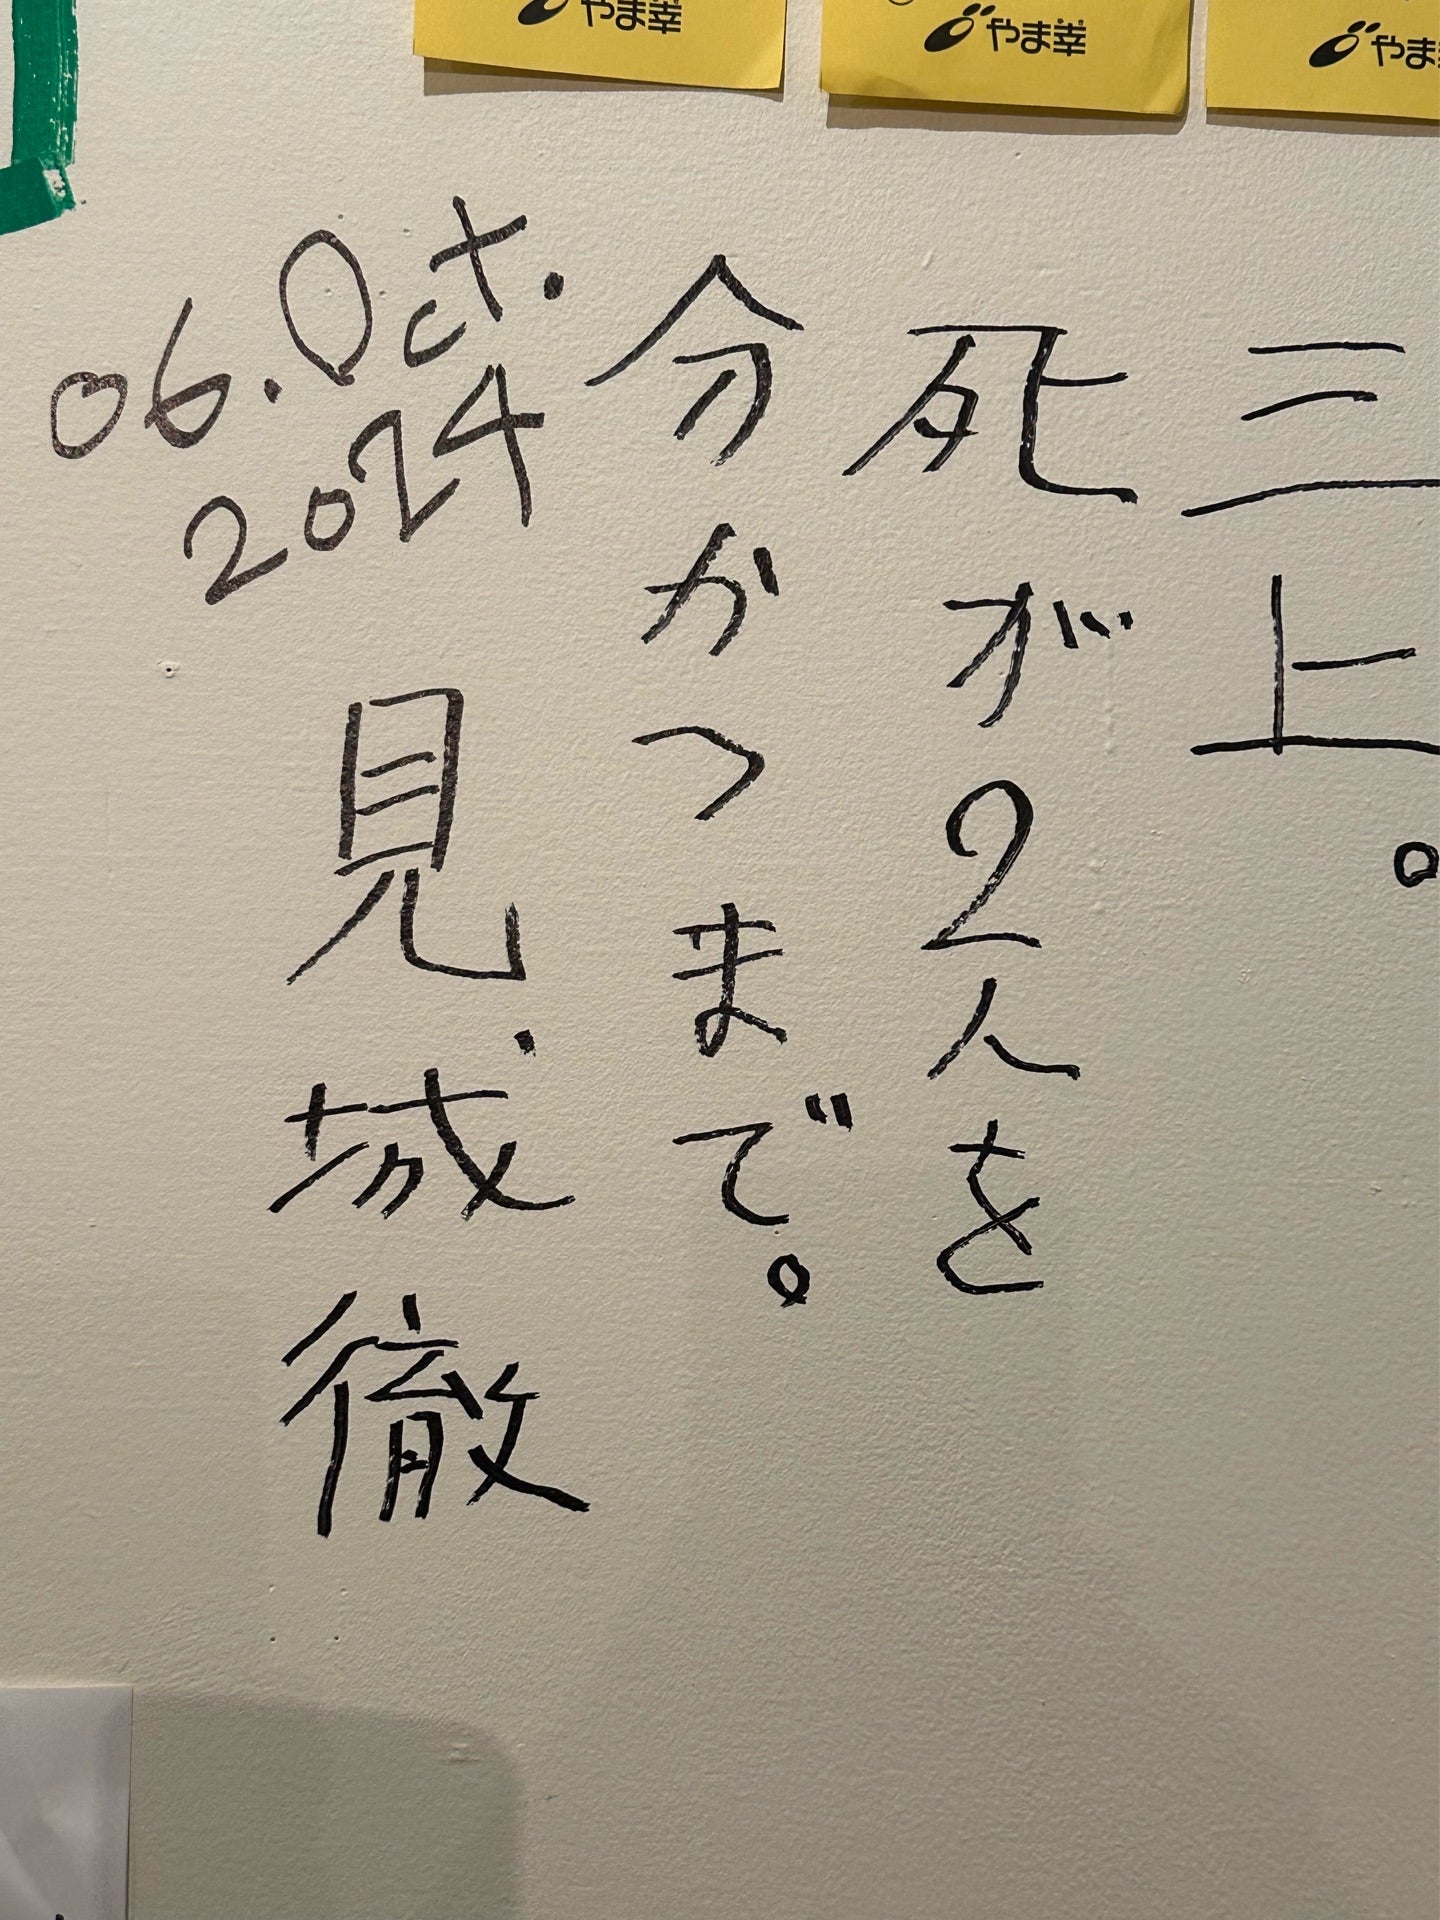 やま幸
やま幸
やま
三上。
死が2人を
分かつまで。
06.Oct.
2024
見城徹